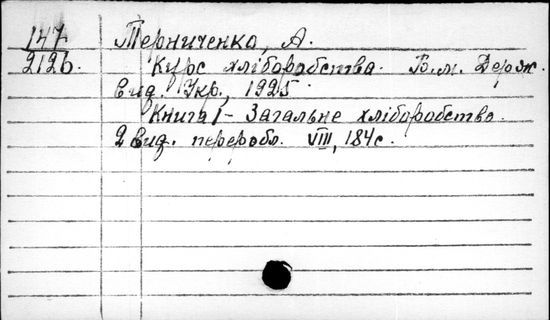 147 Терниченко, А.
212б. Курс хліборобства. В.м. Держ.
вид. Укр., 1925.
Книга I - Загальне хліборобство.
2 вид. переробл. VIII, 184 с.